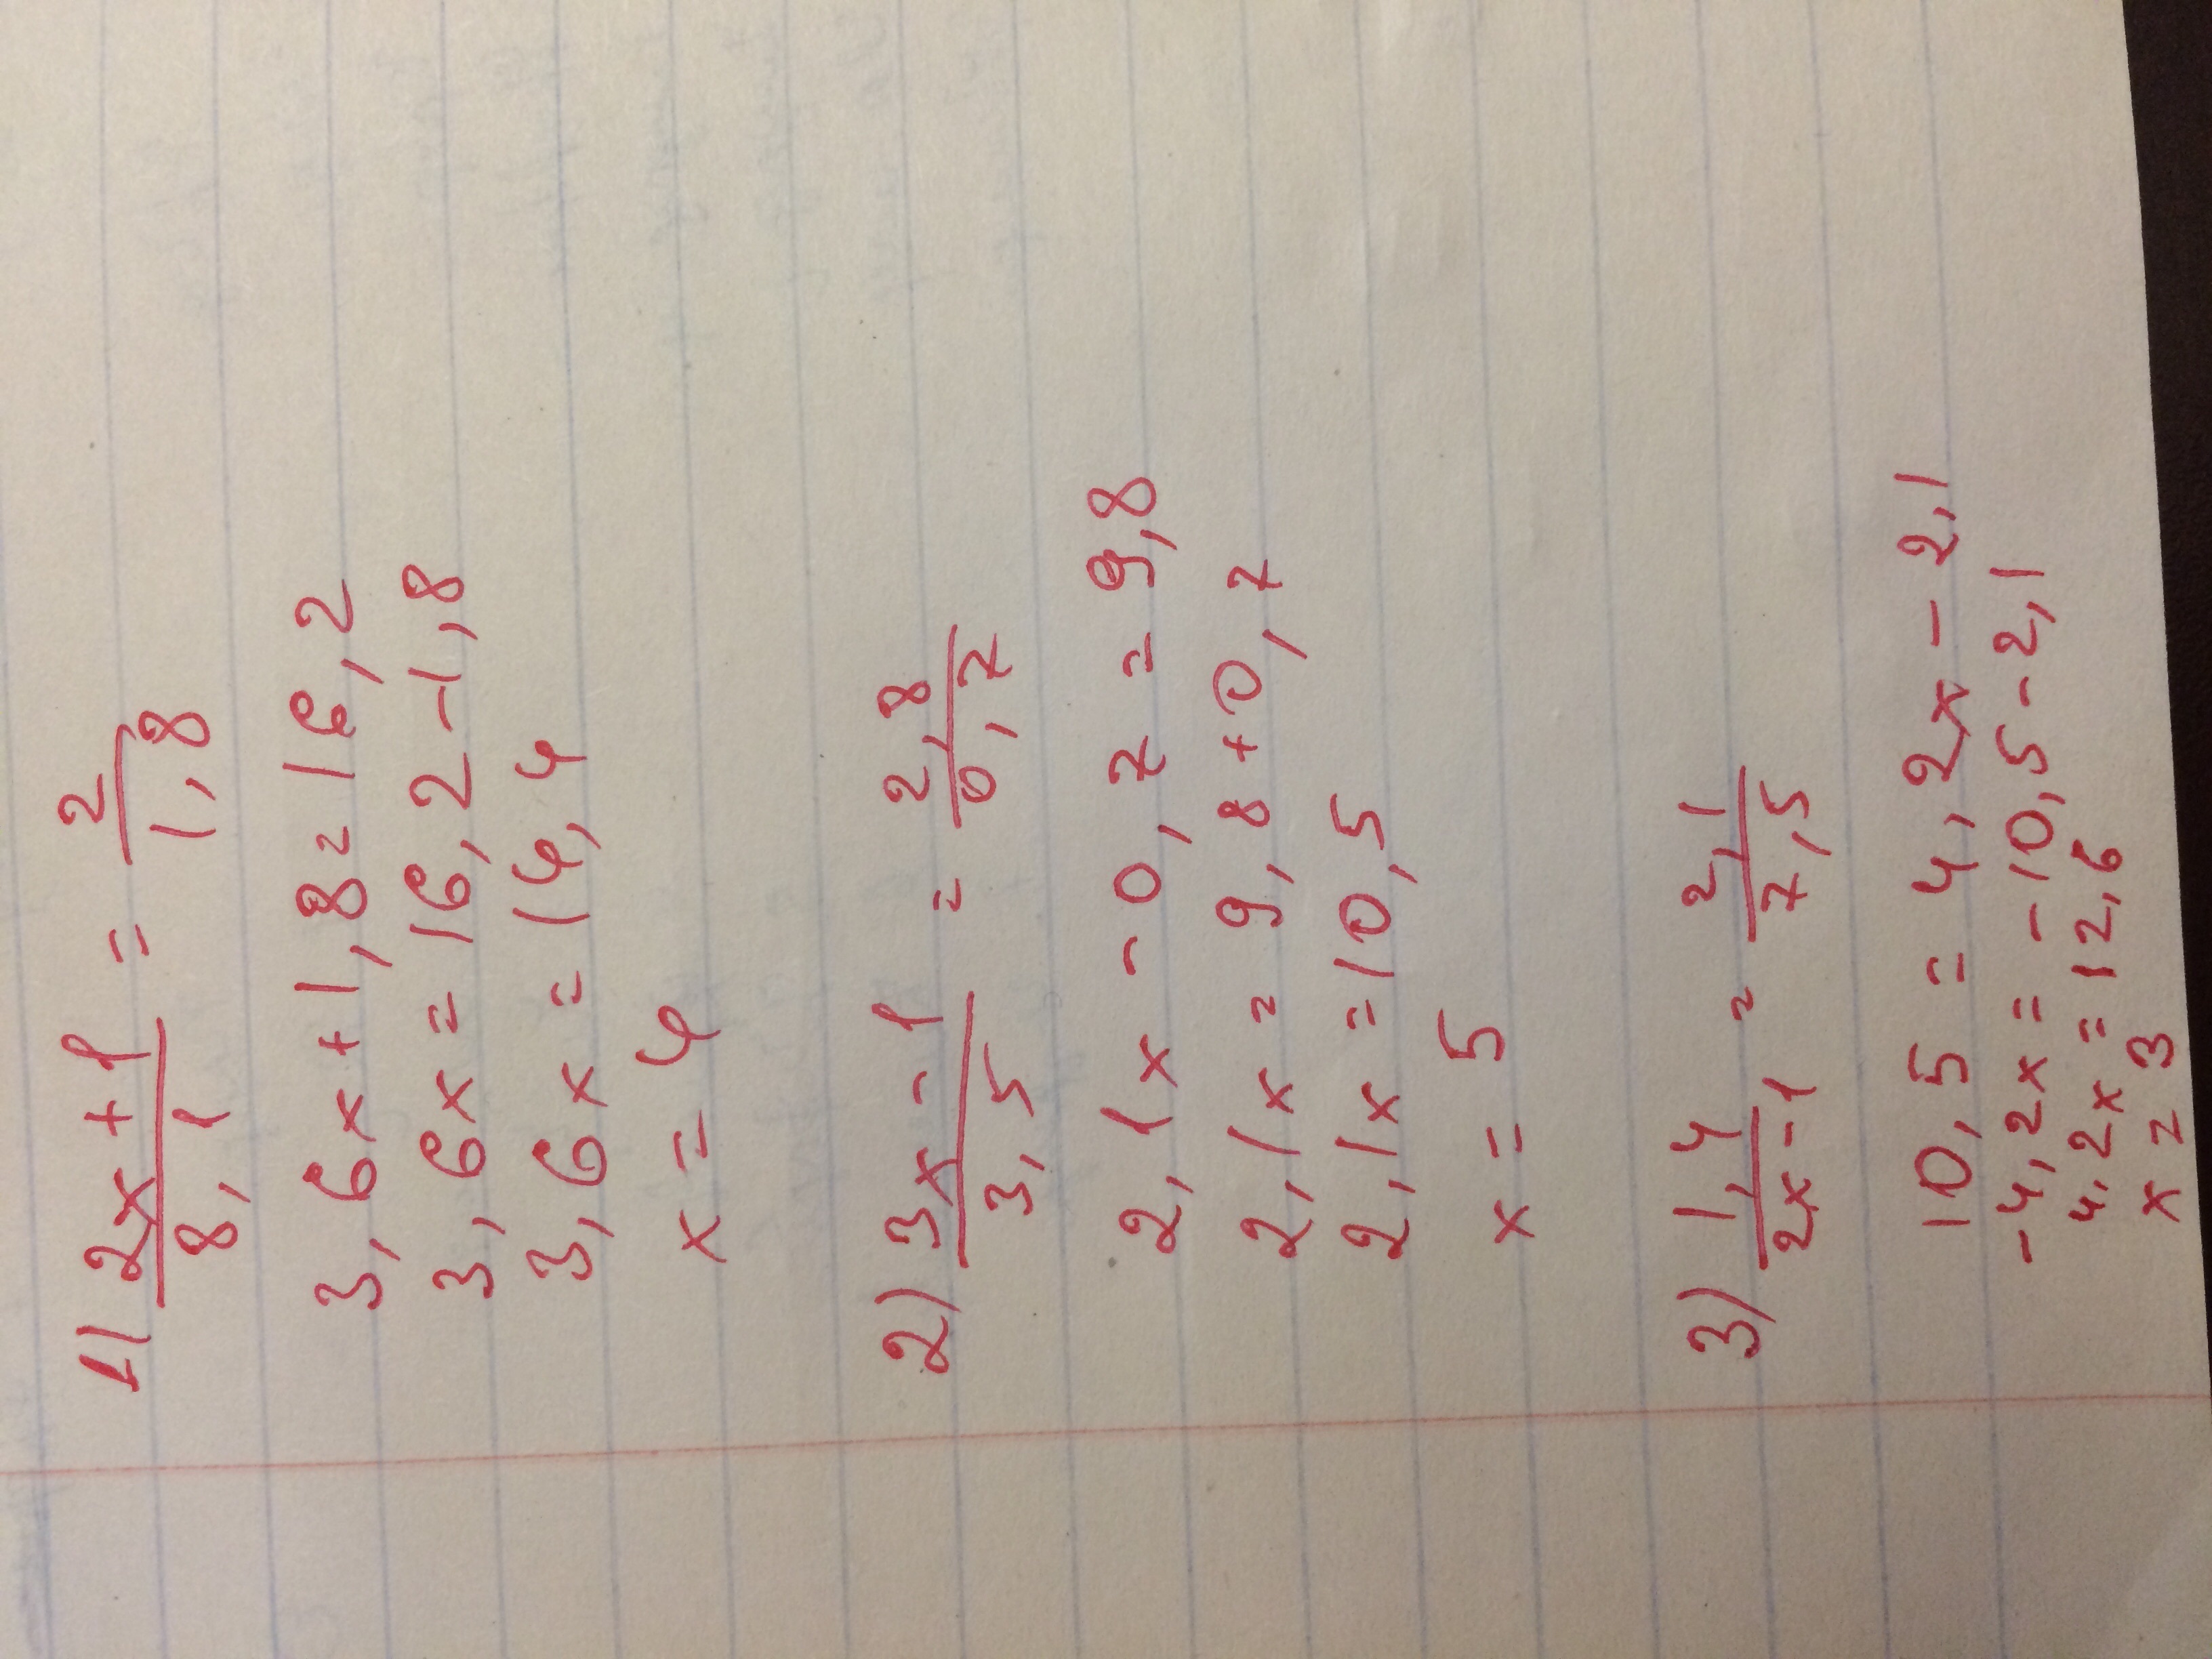 1) (2x + 1)/(8,1) = 2/(1,8)
3,6x + 1,8 = 16,2
3,6x = 16,2 - 1,8
3,6x = 14,4
x = 4
2) (3x - 1)/(3,5) = (2,8)/(0,7)
2,1x - 0,7 = 9,8
2,1x = 9,8 + 0,7
2,1x = 10,5
x = 5
3) (1,4)/(2x - 1) = (2,1)/(7,5)
10,5 = 4,2x - 2,1
-4,2x = -10,5 - 2,1
4,2x = 12,6
x = 3